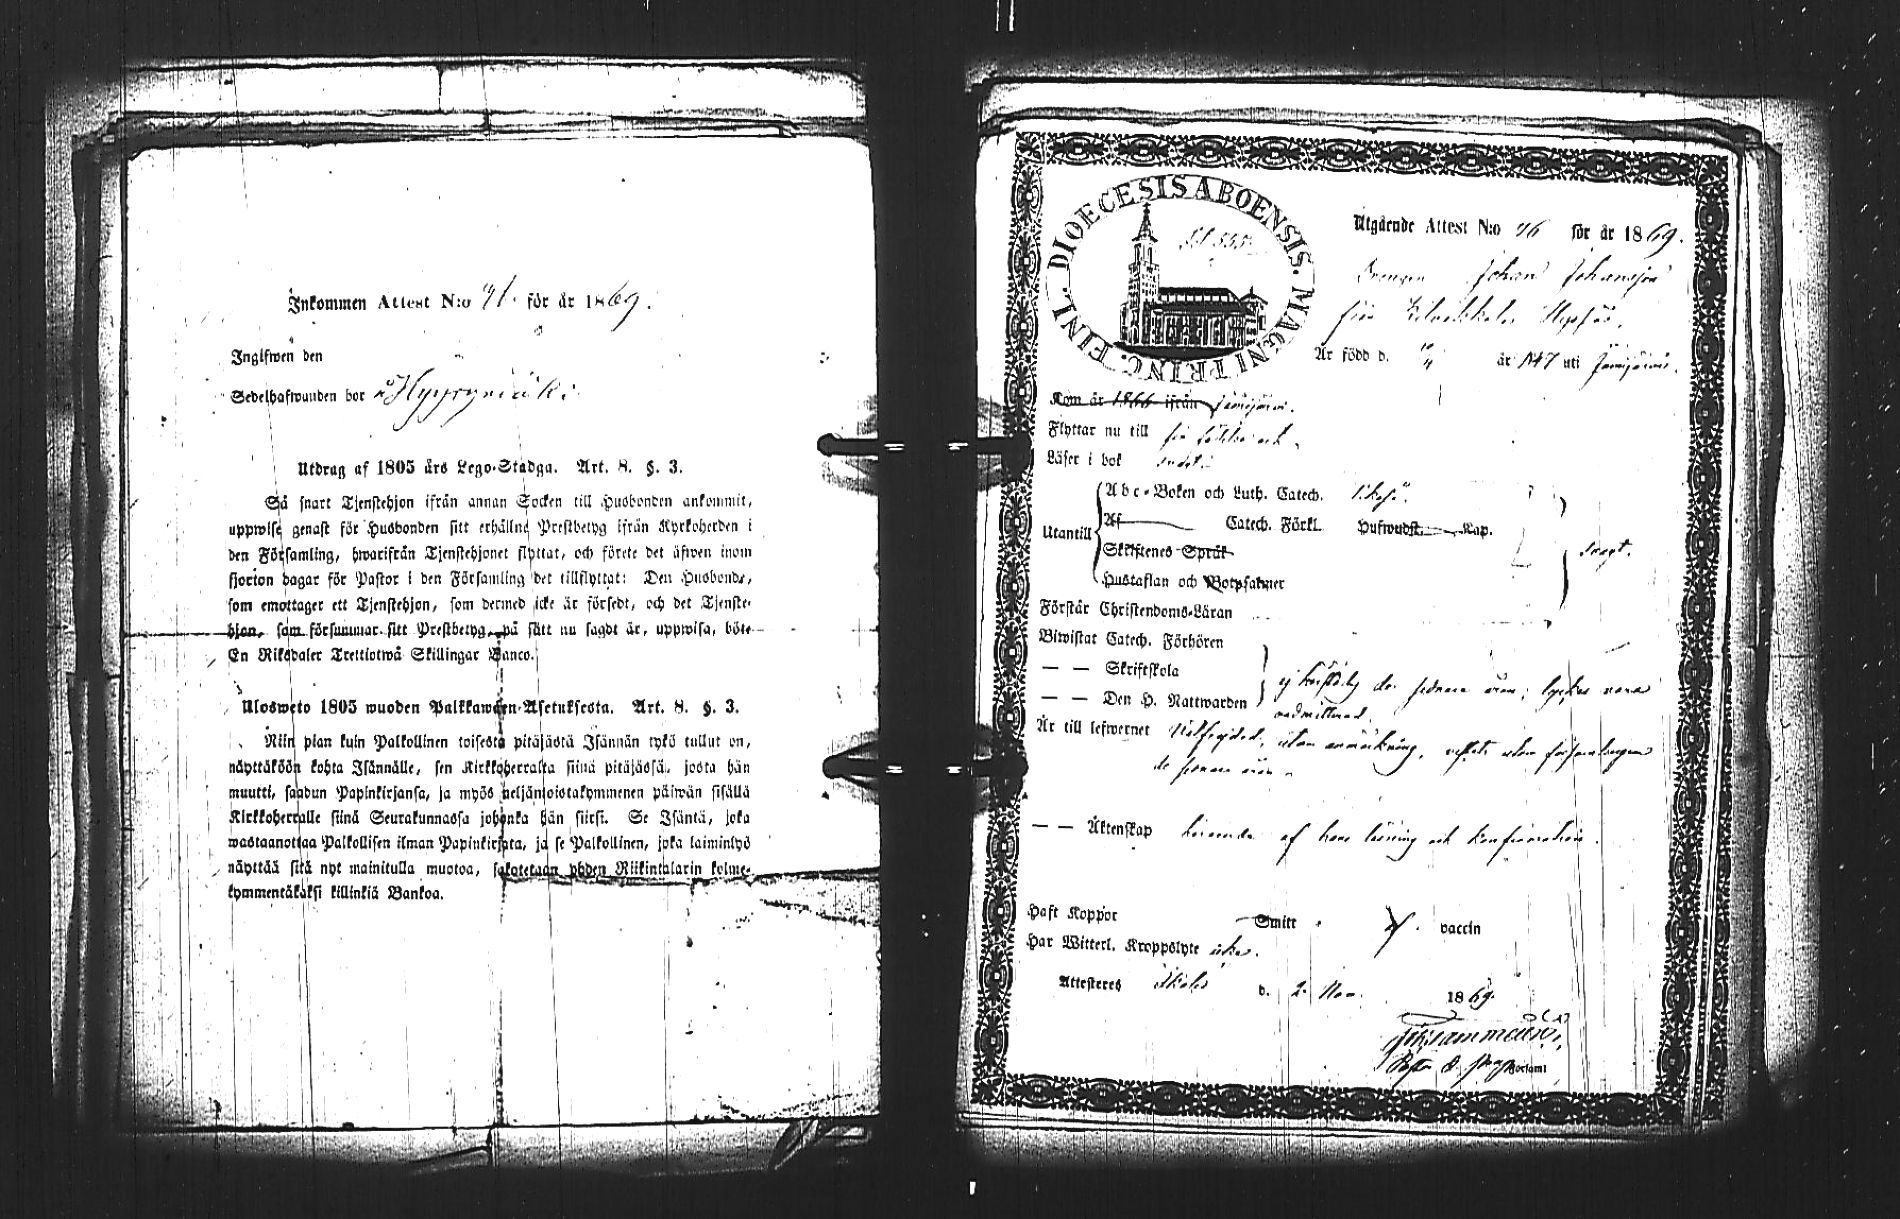 Inkommen Attest N:o 41. för år 1869.
Inglfwen den
Sedelhafwanden bor å Hyypymäki
Utdrag af 1805 års Lego-Stadga. Art. 8. §. 3.
Så snart Tjenstehjon ifrån annan Socken till Husbonden ankommit,
uppwise genast för Husbonden sitt erhållne Prestbetyg ifrån Kyrkoherden i
den Församling, hwarifrån Tjenstehjonet flyttat, och förete det äfwen inom
fjorton dagar för Pastor i den Församling det tillflyttat: Den Husbonde,
som emottager ett Tjenstehjon, som dermed icke är försedt, och det Tjenste-
hjon, som försummar sitt Prestbetyg, på sätt nu sagdt är, uppwisa, böte
En Riksdaler Trettiotwå Skillingar Banco.
Ulosweto 1805 wuoden Palkkawäen-Asetuksesta. Art. 8. §. 3.
Niin pian kuin Palkollinen toisesta pitäjästä Isännän tykö tullut on,
näyttäköön kohta Isännälle, sen Kirkkoherralta siinä pitäjässä, josta hän
muutti, saadun Papinkirjansa, ja myös neljäntoistakymmenen päiwän sisällä
Kirkkoherralle siinä Seurakunnassa johonka hän siirsi. Se Isäntä, joka
wastaanottaa Palkollisen ilman Papinkirjata, ja se Palkollinen, joka laiminlyö
näyttää sitä nyt mainitulla muotoa, sakotetaan yhden Riikintalarin kolme-
kymmentäkaksi killinkiä Bankoa.
DIOECESIS ABOENSIS. MAGNI PRINC. FINL.
Utgående Attest N:o 46 för år 1869.
Drengen Johan Johansson
från
Är född d. år 1847 uti Jämijärvi.
Kom år 1866 ifrån Jämijärvi.
Flyttar nu till
Läser i bok
Utantill
Abc-Boken och Luth. Catech.
Af Catech. Förkl. Hufwudst. Kap.
Skriftenes Språk
Hustaflan och Botpsalmer
svagt.
Förstår Christendoms-Läran
Biwistat Catech. Förhören
— — Skriftskola
— — Den H. Nattwarden
ej de senare åren,
Är till lefwernet utan anmärkning, utom församlingen
de senare åren.
— — Äktenskap beroende af hans läsning och konfirmation.
Haft Koppor Smitt vaccin
Har Witterl. Kroppslyte icke.
Attesteres Ikalis d. 2. Nov. 1869.
Församl